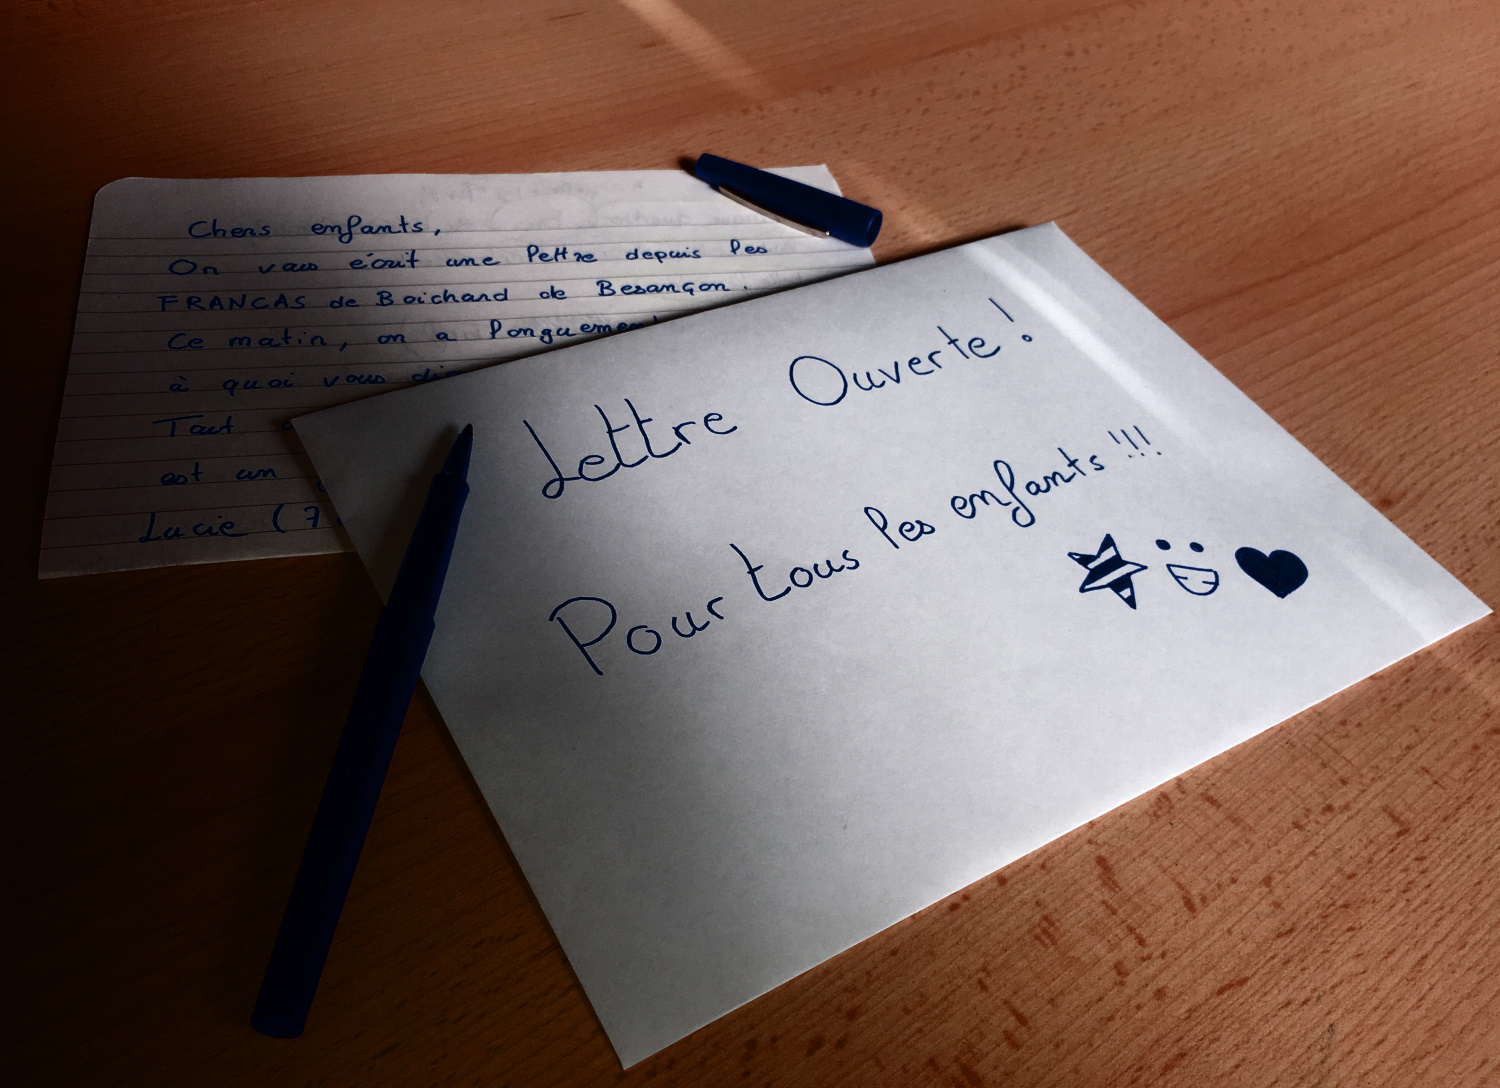 Chers enfants,
On vous écrit une lettre depuis les
FRANCAS de Boichard de Besançon.
Ce matin, on a longuement
à quoi vous
Tout
est un
Lucie (7
Lettre Ouverte !
Pour tous les enfants !!!